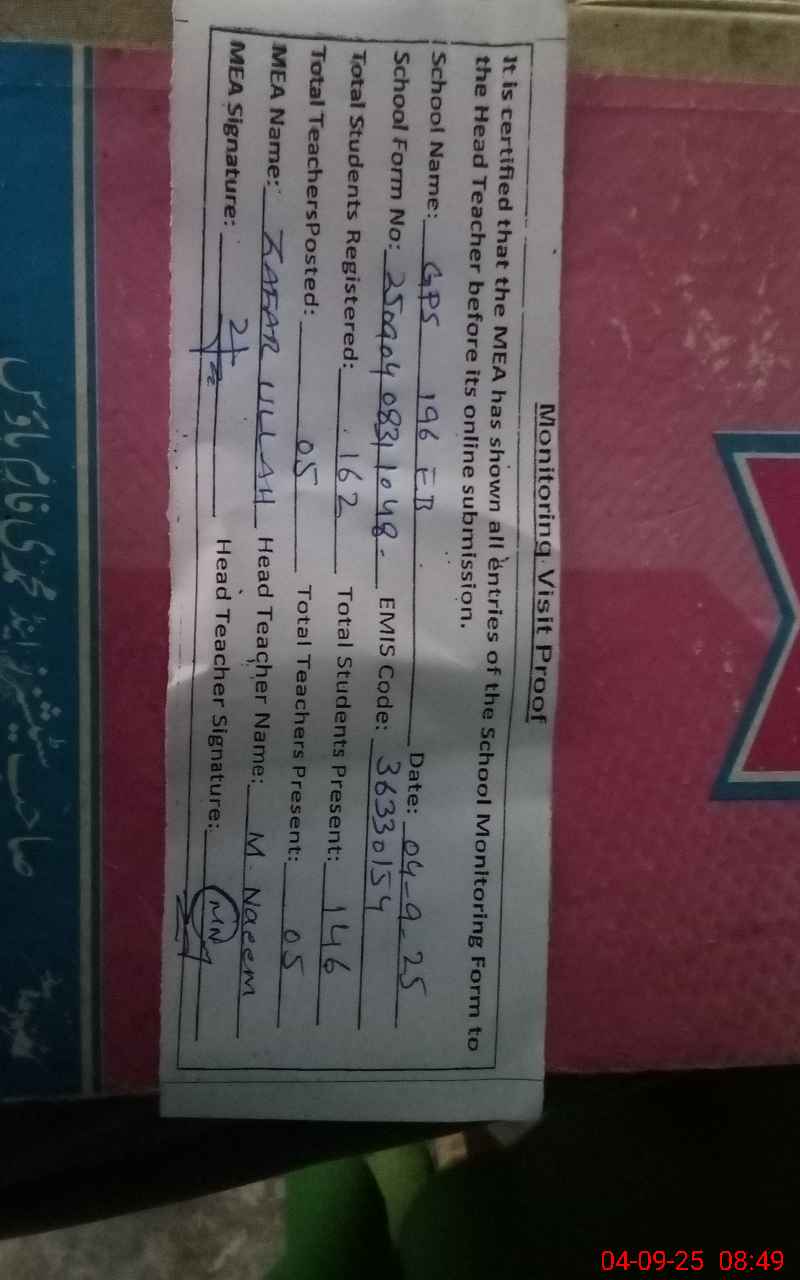 Monitoring Visit Proof
It is certified that the MEA has shown all entries of the School Monitoring Form to
the Head Teacher before its online submission.
School Name: GPS 196 EB Date: 04-9-25
School Form No: 250904 08311048. EMIS Code: 36330154
Total Students Registered: 162 Total Students Present: 146
Total TeachersPosted: 05 Total Teachers Present: 05
MEA Name: ZAFAR ULLAH Head Teacher Name: M. Naeem
MEA Signature: Head Teacher Signature: MN
صاحب سٹیشنرز اینڈ محمدی فارم ہاؤس
04-09-25 08:49